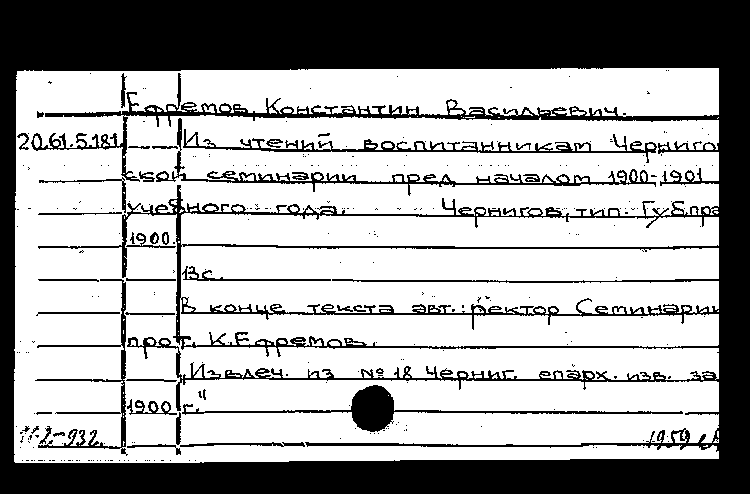 Ефремов, Константин Васильевич.
20.61.5.181. Из чтений воспитанникам Черниго
ской семинарии пред началом 1900-1901
учебного года. Чернигов, тип. Губпра
1900.
13с.
В конце текста авт.: ректор Семинарии
прот. К.Ефремов.
„Извлеч. из №18 Черниг. епарх. изв. за
1900 г."
11-2-932. 1959